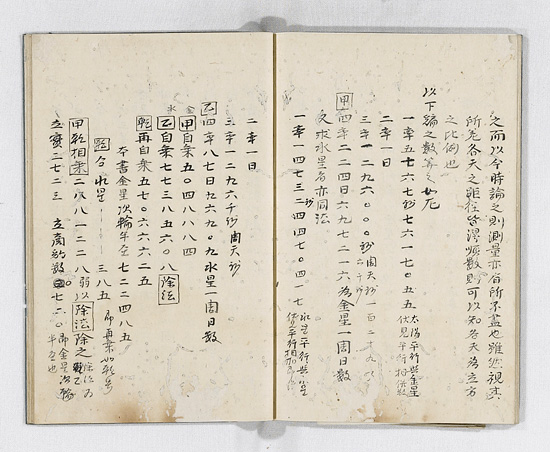 之而以今時論之則測量亦有所不盡也雖然視其
所見各天之距径皆得煩數則可以知各天為立方
之比例也
以下論之数等之如尼
一率五七六七七七一〇五五 太陽平行與金星伏見平行相併数
二率一日
三率一二九六〇〇〇秒 周天秒
甲四率二二四日六九七二一六為金星一周日數
又求水星者亦同法
一率一四七三二四四七〇四一七 水星平行與
二率一日
三率一二九六千秒 周天秒
乙四率八七日九六九〇九水星一周日数
甲自乗五〇四八八八四 金
乙自乗七七三八五六〇八 除法 水
乾再自乗五七〇六六六二五
本書金星次輪半全七二二四八五
水星 三八五 即再乗
甲乾相乗二八八一二二八 弱以除法除之
立實二七二三 立商的数 七二〇 即金星次輪半全也